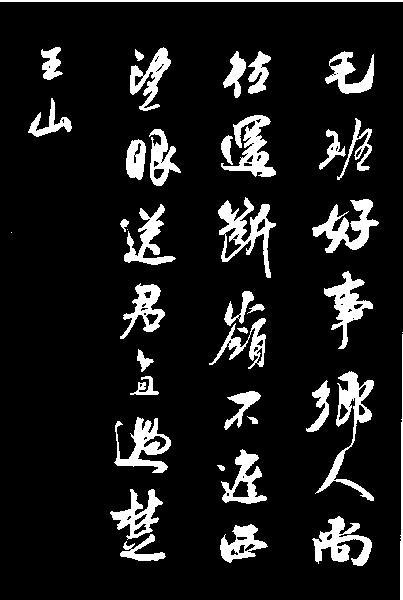 毛班好事鄉人尚
往還斷嶺不遮西
望眼送君直過楚
王山